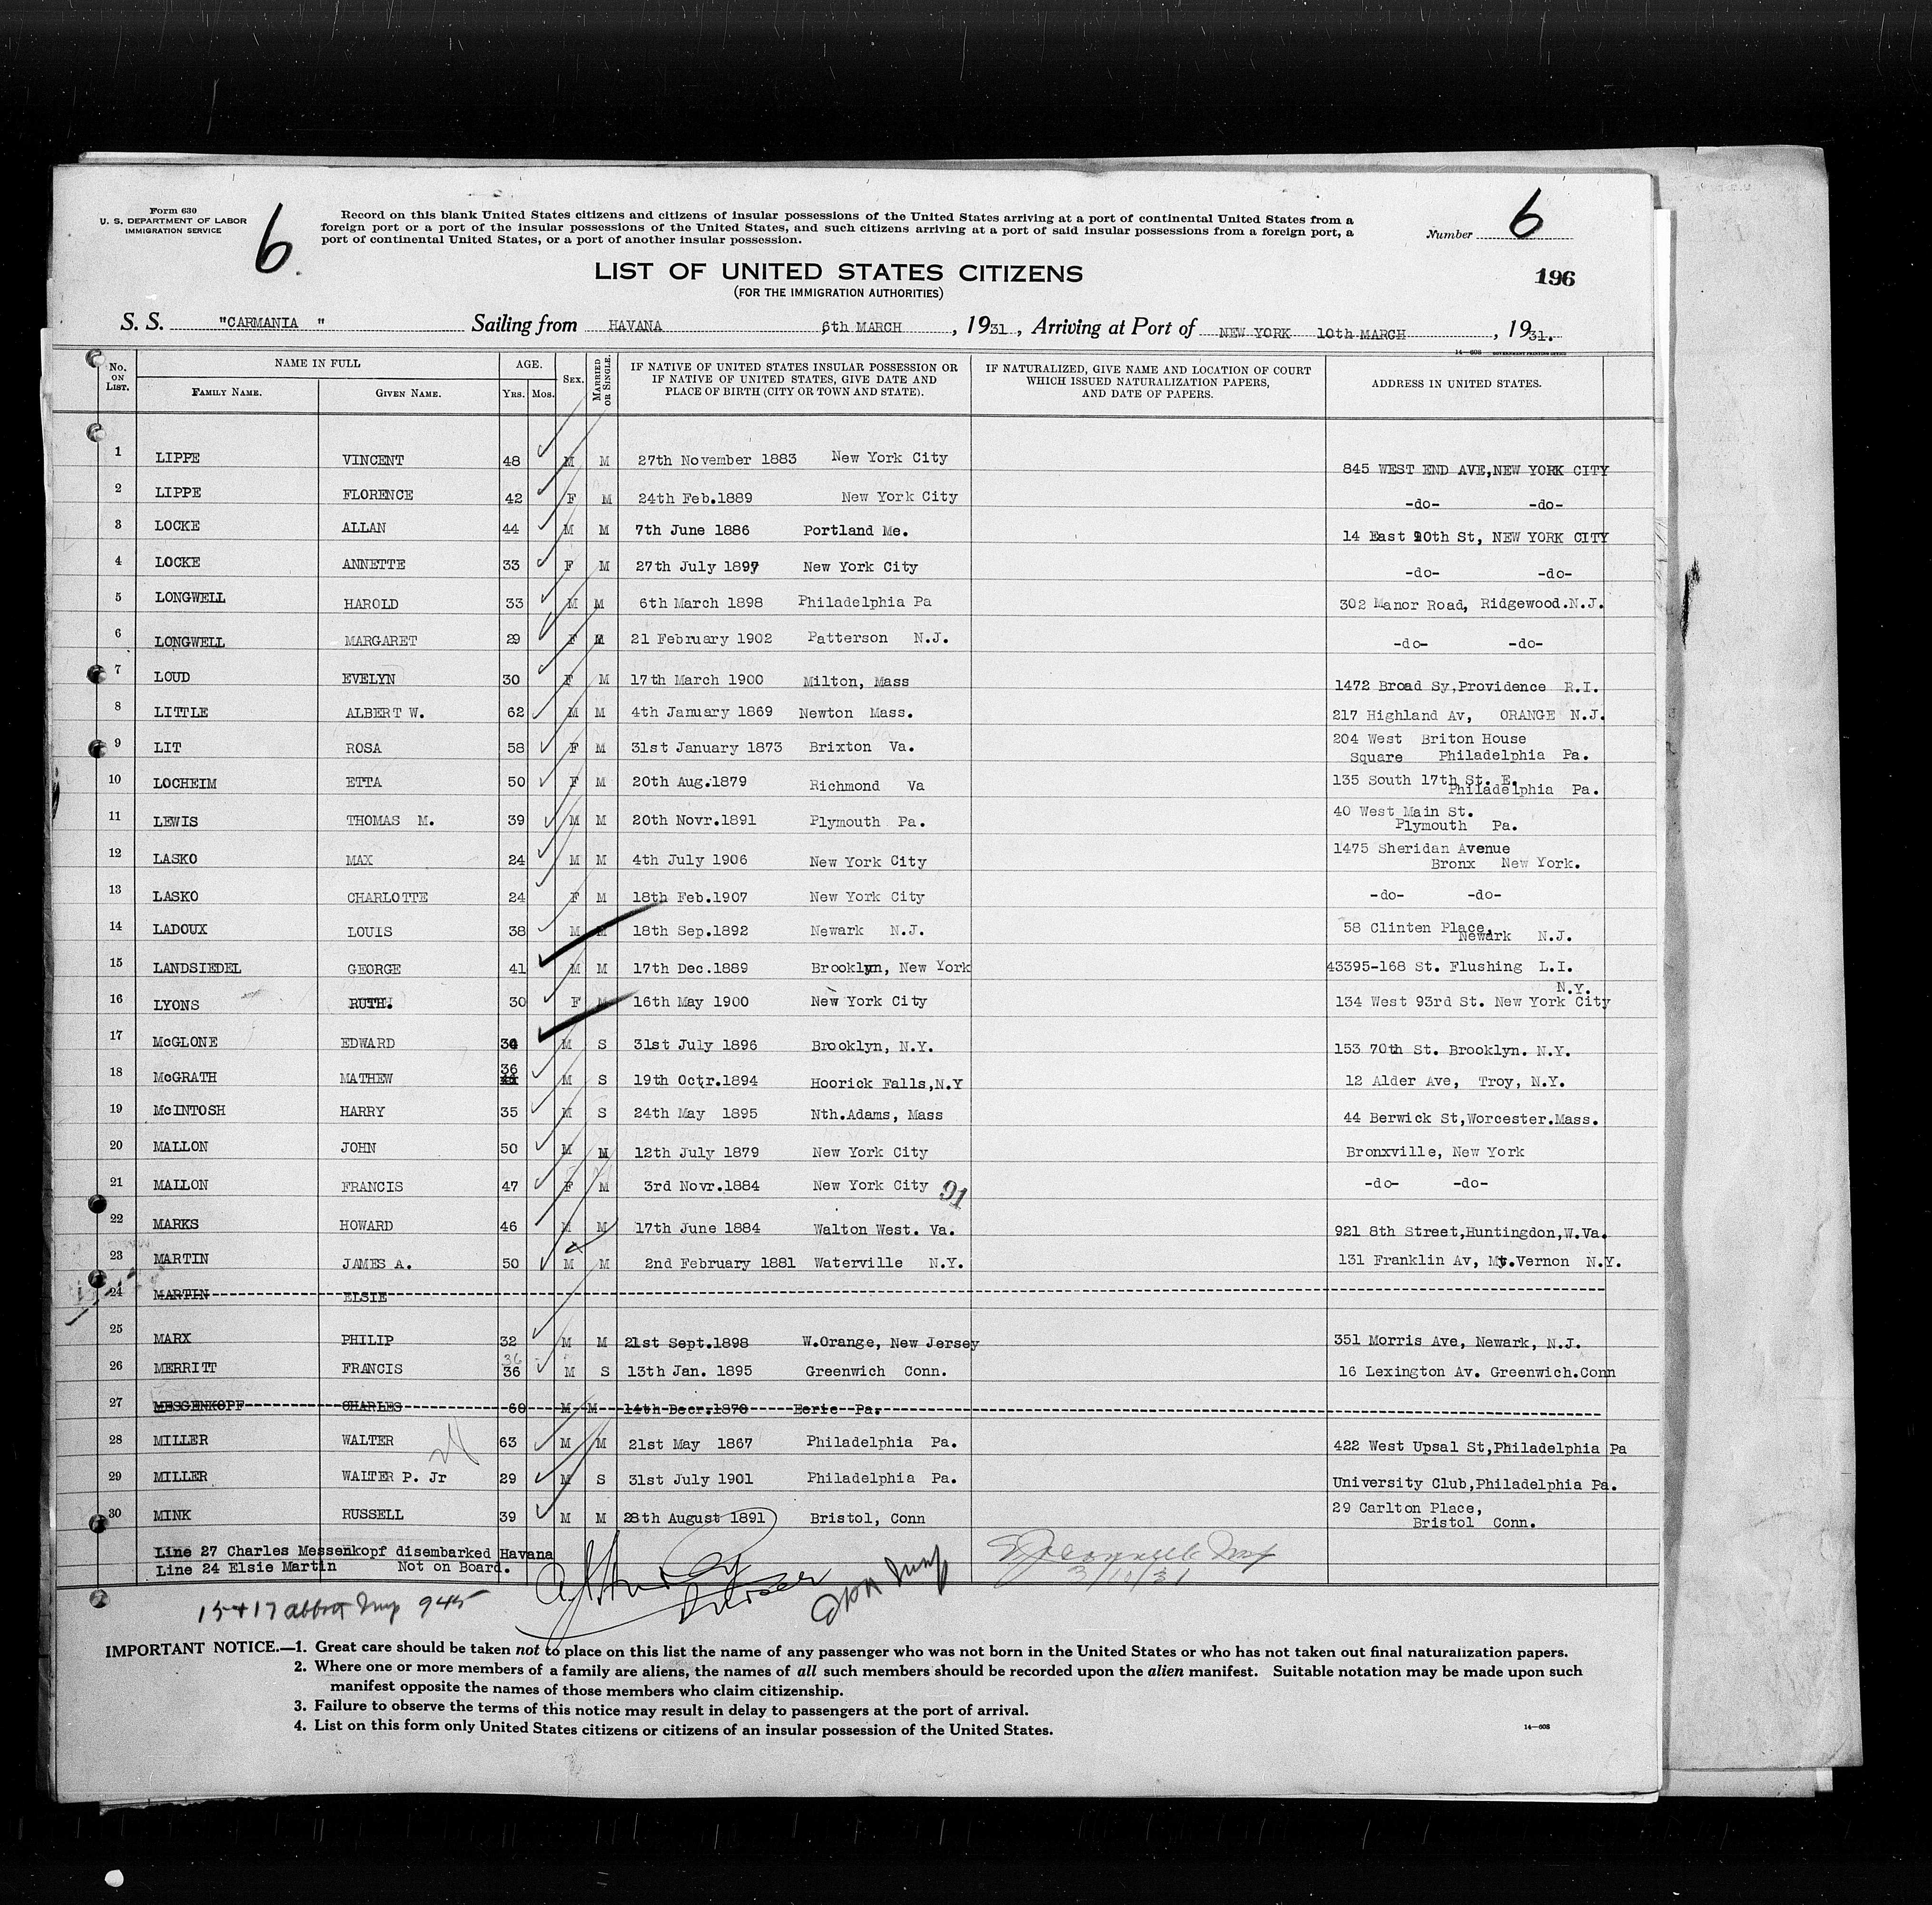 Form 630
U. S. DEPARTMENT OF LABOR
IMMIGRATION SERVICE
6
Record on this blank United States citizens and citizens of insular possessions of the United States arriving at a port of continental United States from a
foreign port or a port of the insular possessions of the United States, and such citizens arriving at a port of said insular possessions from a foreign port, a
port of continental United States, or a port of another insular possession.
Number 6
LIST OF UNITED STATES CITIZENS
(FOR THE IMMIGRATION AUTHORITIES)
196
S. S. "CARMANIA " Sailing from HAVANA 6th MARCH, 1931, Arriving at Port of NEW YORK 10th MARCH, 1931.
14—608 GOVERNMENT PRINTING OFFICE
No. ON LIST. NAME IN FULL FAMILY NAME. GIVEN NAME. AGE. YRS. MOS. SEX. MARRIED OR SINGLE. IF NATIVE OF UNITED STATES INSULAR POSSESSION OR IF NATIVE OF UNITED STATES, GIVE DATE AND PLACE OF BIRTH (CITY OR TOWN AND STATE). IF NATURALIZED, GIVE NAME AND LOCATION OF COURT WHICH ISSUED NATURALIZATION PAPERS, AND DATE OF PAPERS. ADDRESS IN UNITED STATES.
1 LIPPE VINCENT 48 M M 27th November 1883 New York City 845 WEST END AVE,NEW YORK CITY
2 LIPPE FLORENCE 42 F M 24th Feb.1889 New York City -do- -do-
3 LOCKE ALLAN 44 M M 7th June 1886 Portland Me. 14 East 90th St, NEW YORK CITY
4 LOCKE ANNETTE 33 F M 27th July 1897 New York City -do- -do-
5 LONGWELL HAROLD 33 M M 6th March 1898 Philadelphia Pa 302 Manor Road, Ridgewood.N.J.
6 LONGWELL MARGARET 29 F M 21 February 1902 Patterson N.J. -do- -do-
7 LOUD EVELYN 30 F M 17th March 1900 Milton, Mass 1472 Broad Sy,Providence R.I.
8 LITTLE ALBERT W. 62 M M 4th January 1869 Newton Mass. 217 Highland Av, ORANGE N.J.
9 LIT ROSA 58 F M 31st January 1873 Brixton Va. 204 West Briton House
Square Philadelphia Pa.
10 LOCHEIM ETTA 50 F M 20th Aug.1879 Richmond Va 135 South 17th St. E.
Philadelphia Pa.
11 LEWIS THOMAS M. 39 M M 20th Novr.1891 Plymouth Pa. 40 West Main St.
Plymouth Pa.
12 LASKO MAX 24 M M 4th July 1906 New York City 1475 Sheridan Avenue
Bronx New York.
13 LASKO CHARLOTTE 24 F M 18th Feb.1907 New York City -do- -do-
14 LADOUX LOUIS 38 M M 18th Sep.1892 Newark N.J. 58 Clinten Place,
Newark N.J.
15 LANDSIEDEL GEORGE 41 M M 17th Dec.1889 Brooklyn, New York 43395-168 St. Flushing L.I.
N.Y.
16 LYONS RUTH. 30 F M 16th May 1900 New York City 134 West 93rd St. New York City
17 McGLONE EDWARD 34 M S 31st July 1896 Brooklyn, N.Y. 153 70th St. Brooklyn. N.Y.
18 McGRATH MATHEW 36 M S 19th Octr.1894 Hoorick Falls,N.Y 12 Alder Ave, Troy, N.Y.
19 McINTOSH HARRY 35 M S 24th May 1895 Nth.Adams, Mass 44 Berwick St,Worcester.Mass.
20 MALLON JOHN 50 M M 12th July 1879 New York City Bronxville, New York
21 MALLON FRANCIS 47 F M 3rd Novr.1884 New York City 91 -do- -do-
22 MARKS HOWARD 46 M M 17th June 1884 Walton West. Va. 921 8th Street,Huntingdon,W.Va.
23 MARTIN JAMES A. 50 M M 2nd February 1881 Waterville N.Y. 131 Franklin Av, Mt.Vernon N.Y.
24 MARTIN ELSIE
25 MARX PHILIP 32 M M 21st Sept.1898 W.Orange, New Jersey 351 Morris Ave, Newark, N.J.
26 MERRITT FRANCIS 36 36 M S 13th Jan. 1895 Greenwich Conn. 16 Lexington Av. Greenwich.Conn
27 MESSENKOPF CHARLES 60 M M 14th Decr.1870 Eerie Pa.
28 MILLER WALTER 63 M M 21st May 1867 Philadelphia Pa. 422 West Upsal St,Philadelphia Pa
29 MILLER WALTER P. Jr 29 M S 31st July 1901 Philadelphia Pa. University Club,Philadelphia Pa.
30 MINK RUSSELL 39 M M 28th August 1891 Bristol, Conn 29 Carlton Place,
Bristol Conn.
Line 27 Charles Messenkopf disembarked Havana
Line 24 Elsie Martin Not on Board.
Purser
3/10/31
15+17 Abbott Insp 945
IMPORTANT NOTICE.—1. Great care should be taken not to place on this list the name of any passenger who was not born in the United States or who has not taken out final naturalization papers.
2. Where one or more members of a family are aliens, the names of all such members should be recorded upon the alien manifest. Suitable notation may be made upon such
manifest opposite the names of those members who claim citizenship.
3. Failure to observe the terms of this notice may result in delay to passengers at the port of arrival.
4. List on this form only United States citizens or citizens of an insular possession of the United States.
14—608